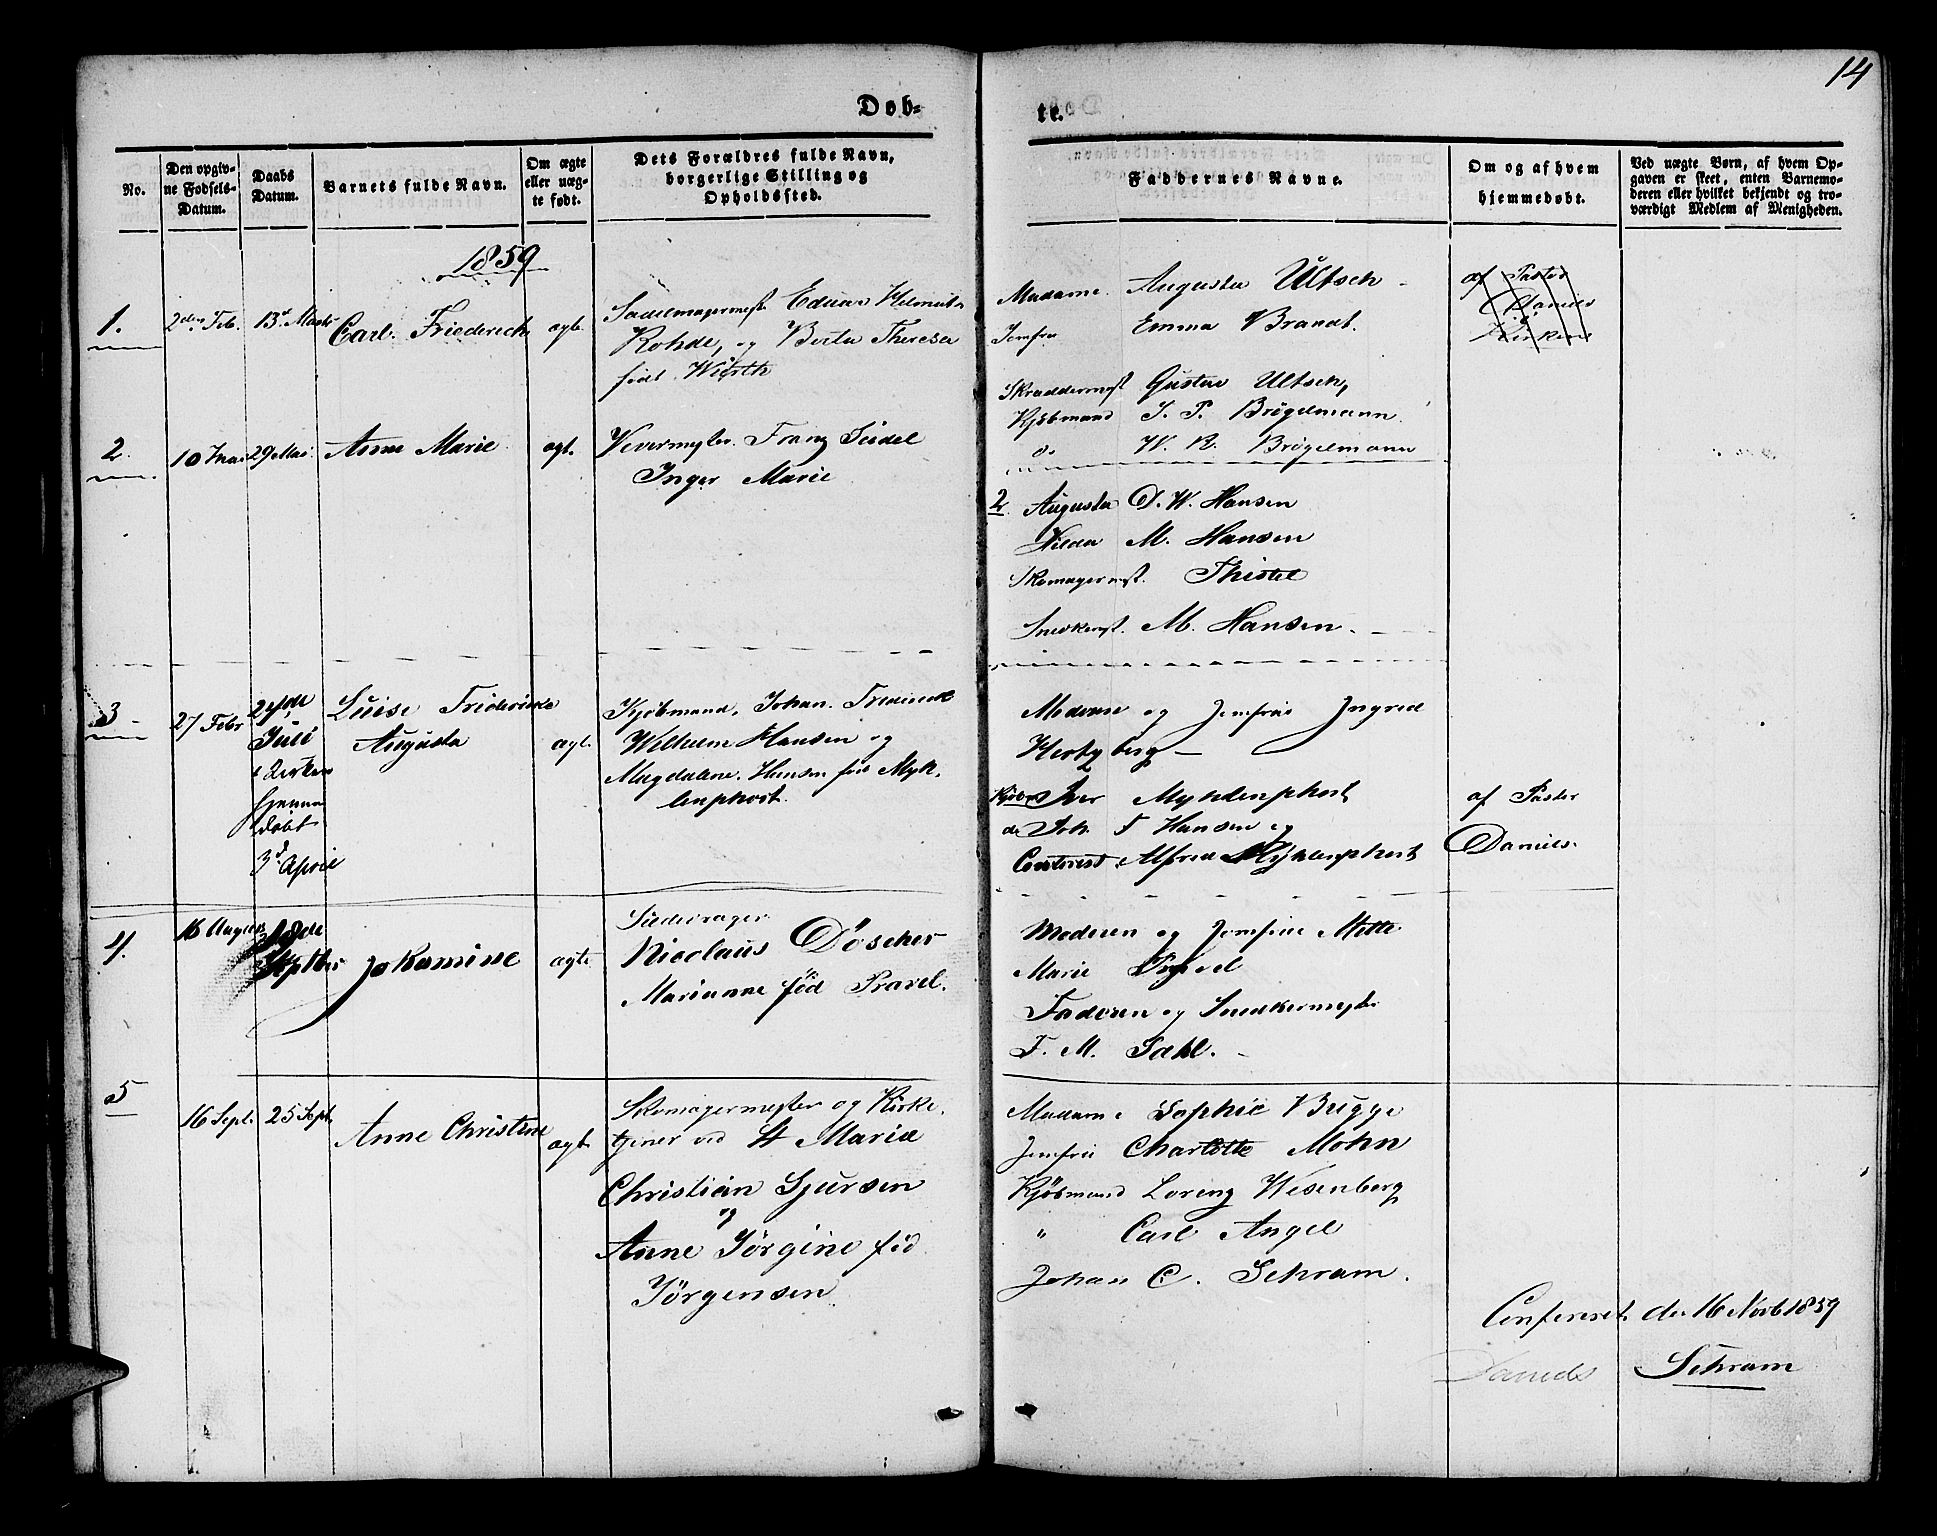 14
Døb-
te.
No.
Den opgiv-
ne Fødsels-
Datum.
Daabs
Datum.
Barnets fulde Navn.
Om ægte
eller uæg-
te født.
Dets Forældres fulde Navn,
borgerlige Stilling og
Opholdssted.
Faddernes Navne.
Om og af hvem
hjemmedøbt.
Ved uægte Børn, af hvem Op-
gaven er skeet, enten Barnemo-
deren eller hvilket bekjendt og tro-
værdigt Medlem af Menigheden.
1859
1.
2den Feb.
13d Marts
Carl Friederich
ægte
Sadelmagermest Eduar Helmuth
Rohde, og Berta Theresa
født Wirth
Madame Augusta Ultsch
Jomfru Emma Brandt.
Skraddermest Gustav Ultsch,
Kjøbmand J. P. Brögelmann
do W. R. Brögelmann
af Pastor
Daniels
i
Kirken
2.
10 Mai
29 Mai
Anne Marie
ægt.
Vevermester Franz Seidel
Inger Marie
2 Augusta D. W. Hansen
Hilda M. Hansen
Skomagermst. Thistel
Snedkermst. M. Hansen
3
27 Febr
Juli
i Kirken
hjemme
døbt
3d April
Luise Friederike
Augusta
ægt.
Kjøbmand, Johan Frederick
Wilhelm Hansen og
Magdalene Hansen fød Myk-
lenphost.
Moderen og Jomfru Ingred
Hertzberg
Iver Myklenphost
do Joh. F Hansen og
Alfred Myklenphost
af Pastor
Daniels.
4.
16 August
18de
Septber
Johamine
ægte
Nicolaus Döscher
Marianne fød Pravel.
Moderen og Jomfrue Mette
Marie Pravel
Faderen og Snedkermester
F. M. Dahl.
5
16 Sept.
25 Sept.
Anne Christine
ægt.
Skomagermester og Kirke-
tjener ved St Mariæ
Christian Sjursen
og
Anne Jørgine fød
Jørgensen
Madame Sophie Brügge
Jomfru Charlotte Mohn
Kjøbmand Lorenz Wesenberg
" Carl Angel
Johan C. Schram.
Confereret den 16 Novb 1859
Daniels Schram